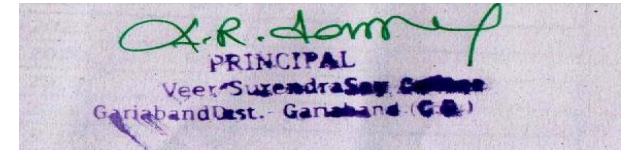 PRINCIPAL
Veer Surendra Say College
Gariaband Dist. Gariaband (C.G.)